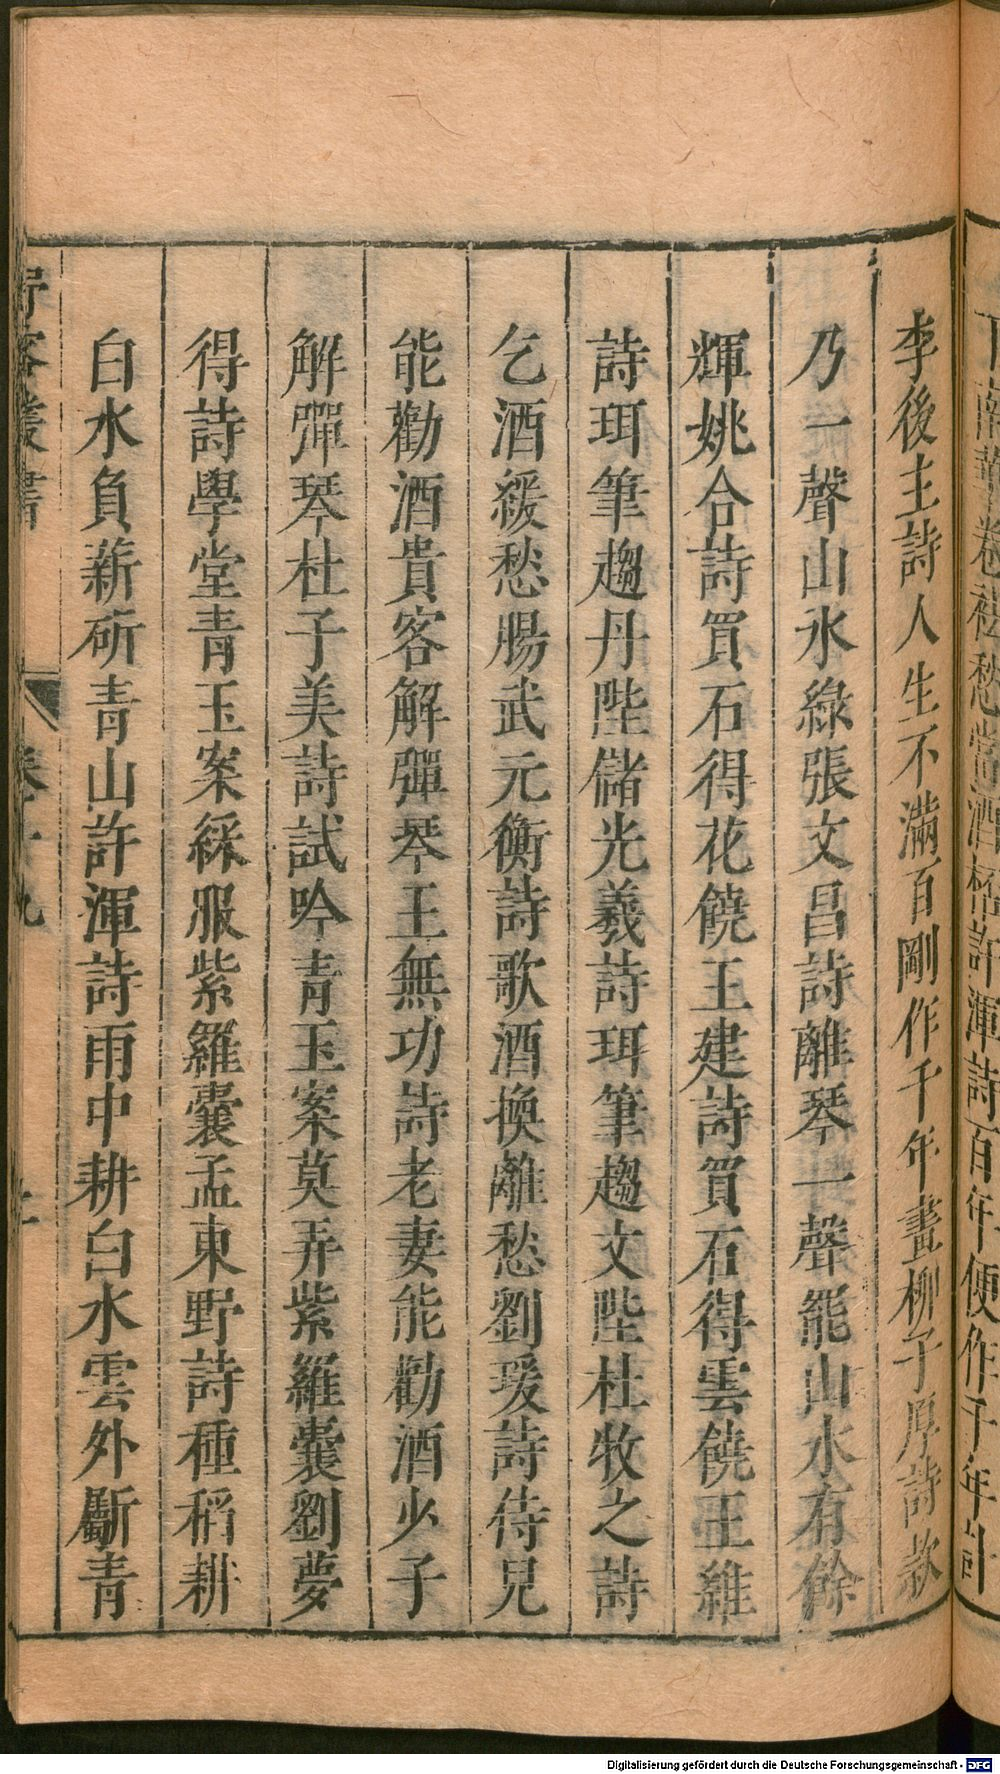 下南華卷袪愁當酒杯許渾詩百年便作千年計
李後主詩人生不滿百剛作千年畫柳子厚詩欸
乃一聲山水綠張文昌詩離琴一聲罷山水有餘
輝姚合詩買石得花饒王建詩買石得雲饒王維
詩珥筆趨丹陛儲光羲詩珥筆趨文陛杜牧之詩
乞酒緩愁腸武元衡詩歌酒換離愁劉瑗詩侍兒
能勸酒貴客解彈琴王無功詩老妻能勸酒少子
解彈琴杜子美詩試吟青玉案莫弄紫羅囊劉夢
得詩學堂青玉案綵服紫羅囊孟東野詩種稻耕
白水負薪斫青山許渾詩雨中耕白水雲外斸青
野客叢書 卷十九
Digitalisierung gefördert durch die Deutsche Forschungsgemeinschaft - DFG